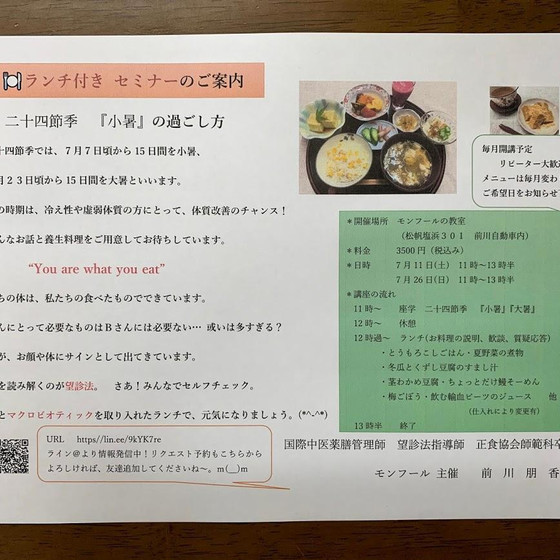 ランチ付き セミナーのご案内
二十四節季 『小暑』の過ごし方
十四節季では、7月7日頃から15日間を小暑、
月23日頃から15日間を大暑といいます。
の時期は、冷え性や虚弱体質の方にとって、体質改善のチャンス！
んなお話と養生料理をご用意してお待ちしています。
“You are what you eat”
ちの体は、私たちの食べものでできています。
んにとって必要なものはBさんには必要ない… 或いは多すぎる？
が、お顔や体にサインとして出てきています。
を読み解くのが望診法。 さあ！みんなでセルフチェック。
とマクロビオティックを取り入れたランチで、元気になりましょう。(*^-^*)
URL https://lin.ee/9kYK7re
ライン@より情報発信中！リクエスト予約もこちらから
よろしければ、友達追加してくださいね～。m(__)m
毎月開講予定
リピーター大歓迎
メニューは毎月変わ
ご希望日をお知らせ下
*開催場所 モンフールの教室
（松帆塩浜301 前川自動車内）
*料金 3500円（税込み）
*日時 7月11日(土) 11時～13時半
7月26日(日) 11時～13時半
*講座の流れ
11時～ 座学 二十四節季 『小暑』『大暑』
12時～ 休憩
12時過～ ランチ(お料理の説明、歓談、質疑応答)
・とうもろこしごはん・夏野菜の煮物
・冬瓜とくずし豆腐のすまし汁
・茎わかめ豆腐・ちょっとだけ鰻そーめん
・梅ごぼう・飲む輸血ビーツのジュース 他
（仕入れにより変更有）
13時半 終了
国際中医薬膳管理師 望診法指導師 正食協会師範科卒
モンフール 主催 前 川 朋 香